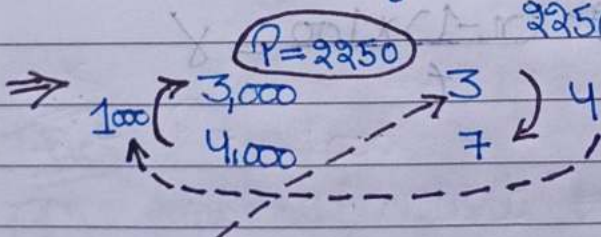 P=2250 225
⇒ 1000 3,000 3 4
4,000 7